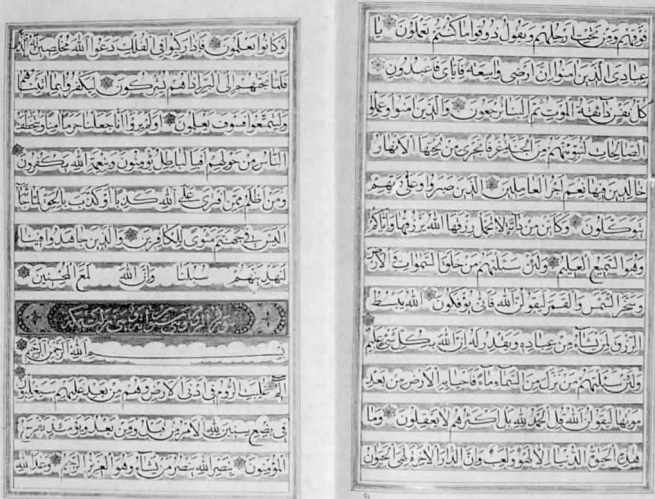 فوقهم ومن تحت ارجلهم ويقول ذوقوا ما كنتم تعملون يا
عبادي الذين امنوا ان ارضي واسعة فاياي فاعبدون
كل نفس ذائقة الموت ثم الينا ترجعون والذين امنوا وعملوا
الصالحات لنبوئنهم من الجنة غرفا تجري من تحتها الانهار
خالدين فيها نعم اجر العاملين الذين صبروا وعلى ربهم
يتوكلون وكاين من دابة لا تحمل رزقها الله يرزقها واياكم
وهو السميع العليم ولئن سئلتهم من خلق السموات والارض
وسخر الشمس والقمر ليقولن الله فانى يؤفكون الله يبسط
الرزق لمن يشاء من عباده ويقدر له ان الله بكل شيء عليم
ولئن سئلتهم من نزل من السماء ماء فاحيا به الارض من بعد
موتها ليقولن الله قل الحمد لله بل اكثرهم لا يعقلون وما
هذه الحيوة الدنيا الا لهو ولعب وان الدار الاخرة لهي الحيوان
لو كانوا يعلمون فاذا ركبوا في الفلك دعوا الله مخلصين له الدين
فلما نجيهم الى البر اذا هم يشركون ليكفروا بما اتيناهم
وليتمتعوا فسوف يعلمون اولم يروا انا جعلنا حرما امنا ويتخطف
الناس من حولهم افبالباطل يؤمنون وبنعمة الله يكفرون
ومن اظلم ممن افترى على الله كذبا او كذب بالحق لما جاءه
اليس في جهنم مثوى للكافرين والذين جاهدوا فينا
لنهدينهم سبلنا وان الله لمع المحسنين
سورة الروم
بسم الله الرحمن الرحيم
الم غلبت الروم في ادنى الارض وهم من بعد غلبهم سيغلبون
في بضع سنين لله الامر من قبل ومن بعد ويومئذ يفرح
المؤمنون بنصر الله ينصر من يشاء وهو العزيز الرحيم وعد الله